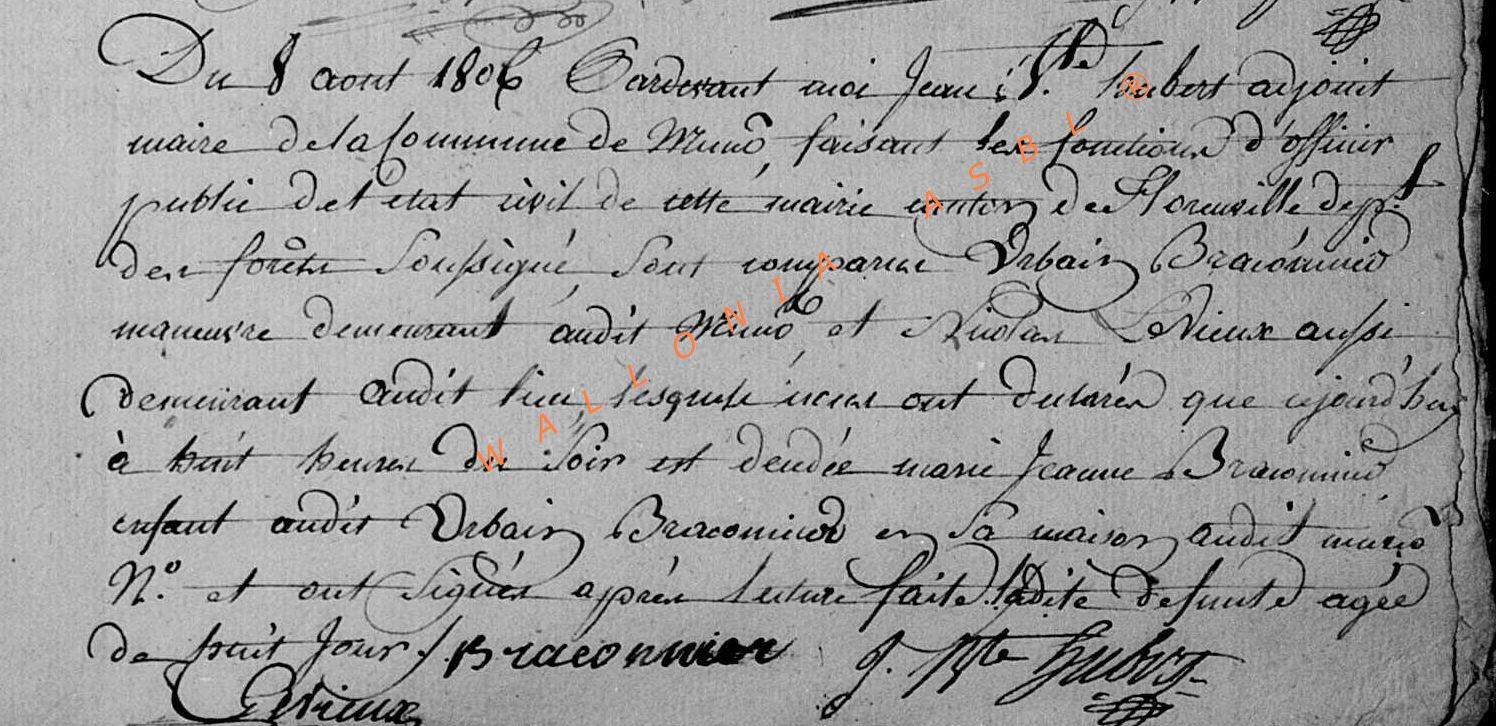 Du 8 aout 1806 Pardevant moi Jean Bte hubert adjoint
maire de la Commune de Muno faisant les fonctions d'officier
public de l'etat civil de cette mairie canton de Florenville dept
des forêts Soussigné, Sont comparus Urbain Braconnier
manuvre demeurant audit Muno et Nicolas Levieux aussi
demeurant audit lieu, lesquels iceux ont declarés que cejourd'huy
à huit heures du Soir est decedée marie Jeanne Braconnier
enfant audit Urbain Braconnier en sa maison audit muno
N.° et ont signés aprés lecture faite. ladite defunte agée
de huit Jours /. Braconnier J. Bte Hubert
Levieux
WALLONIA ASBL ®